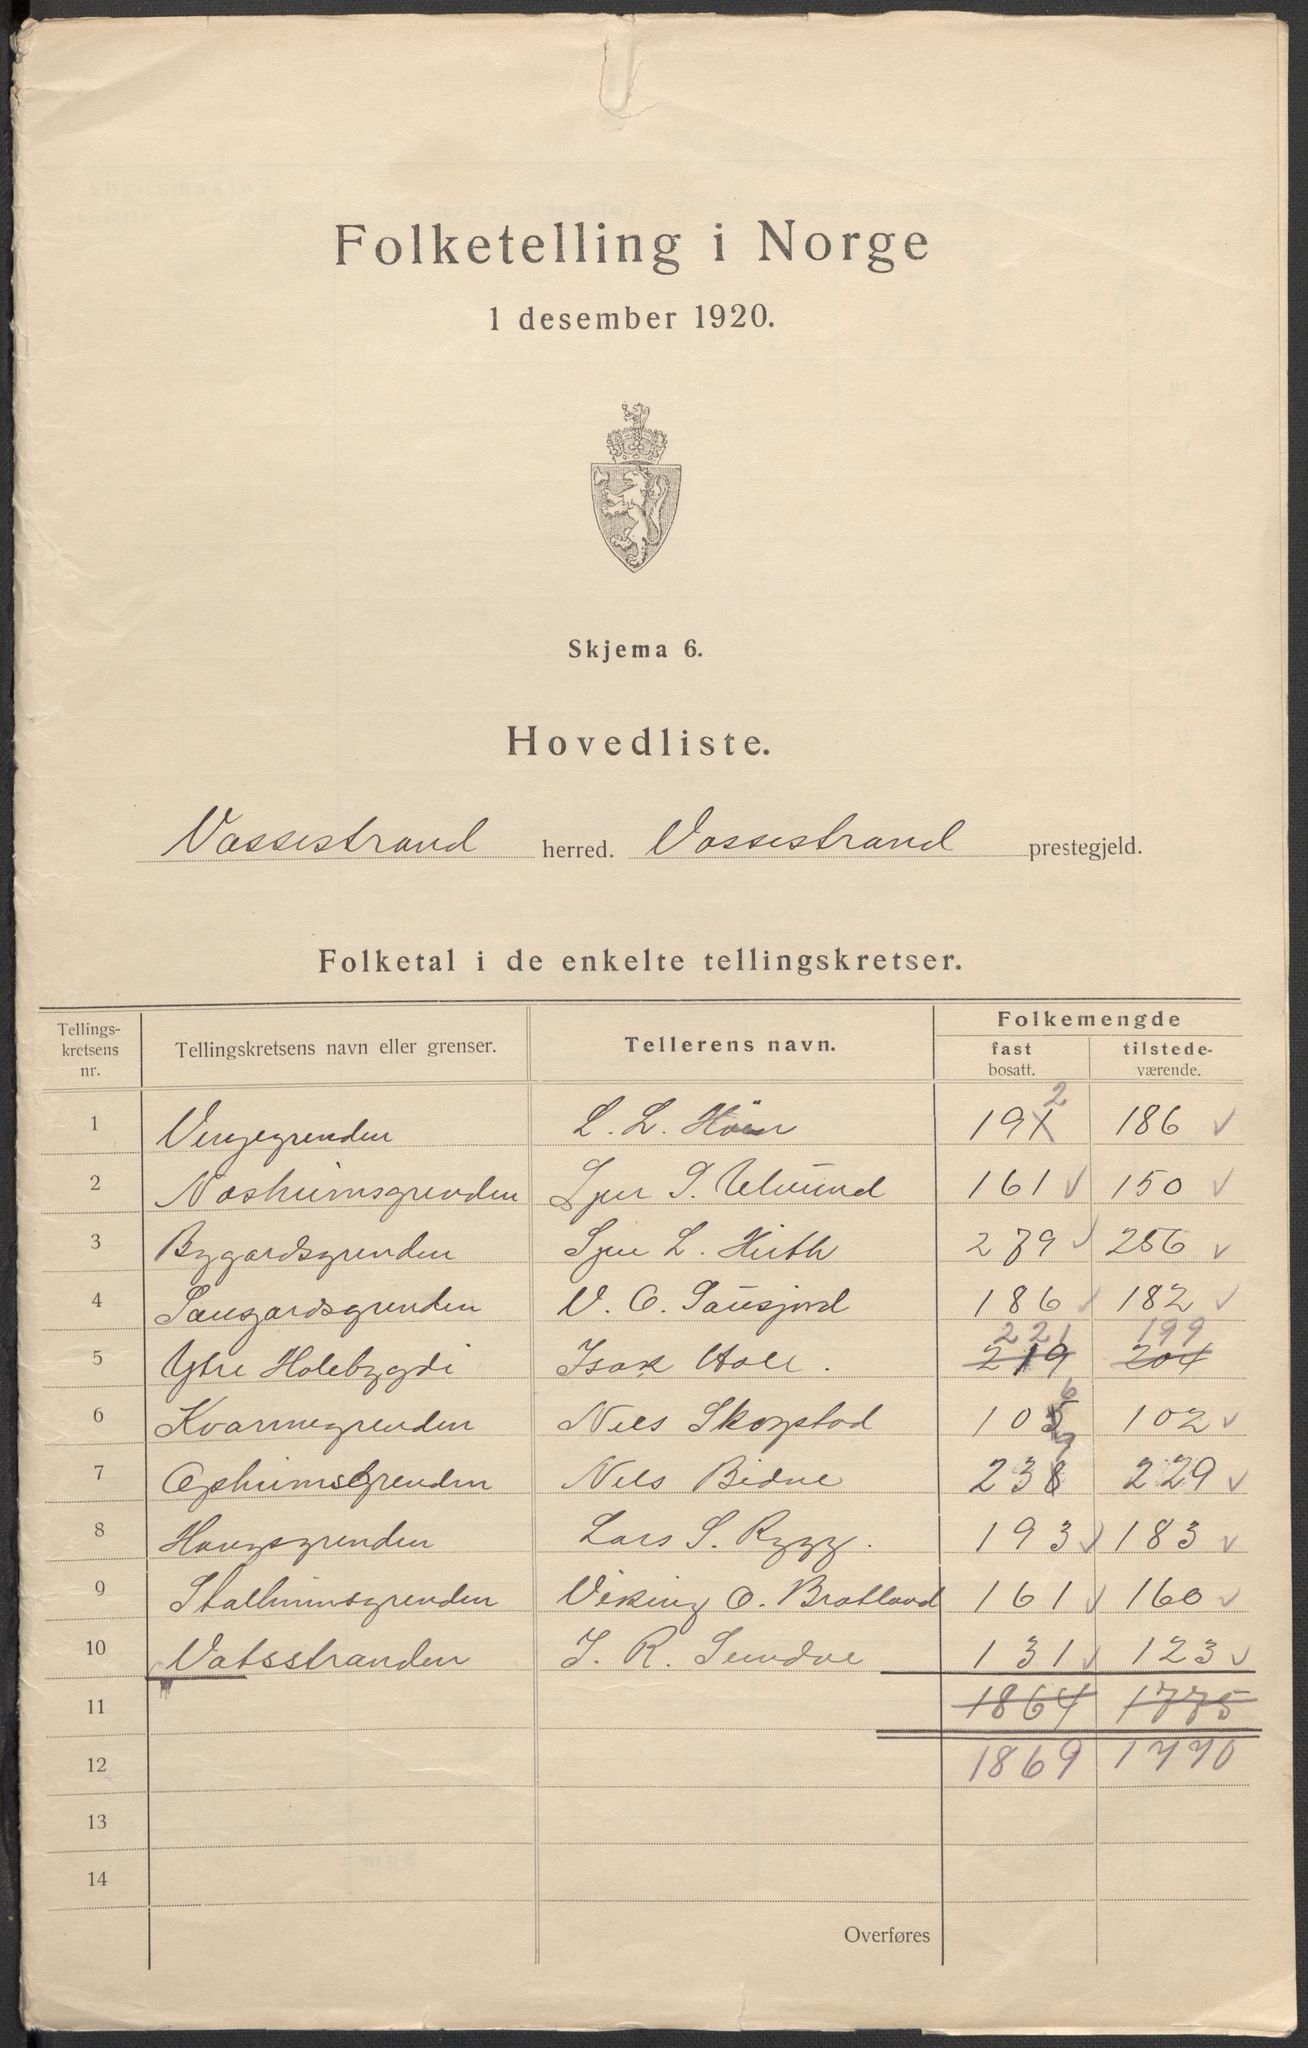 Folketelling i Norge
1 desember 1920.
Skjema 6.
Hovedliste.
Vossestrand herred. Vossestrand prestegjeld.
Folketal i de enkelte tellingskretser.
Tellings-
kretsens
nr.
Tellingskretsens navn eller grenser.
Tellerens navn.
Folkemengde
fast
bosatt.
tilstede-
værende.
2
1 Vinjegrenden L. L. 191 186 ✓
2 Nosheimsgrenden Sjur S. Ulvund 161 ✓ 150 ✓
3 Bygardsgrenden Sjur L. Hirth 279 ✓ 256 ✓
4 Saugardsgrenden V. O. Sausjord 186 ✓ 182 ✓
221 199
5 Ytre Holebygdi Isak Hole. 219 204
6
6 Kvarmegrenden Nils Skogstad 105 102 ✓
9
7 Opheimsgrenden Nils Bidne 238 229 ✓
8 Haugsgrenden Lars S. Rygg. 193 ✓ 183 ✓
9 Stalheimsgrenden Viking O. Bratland 161 ✓ 160 ✓
10 Vatsstranden I. R. Sundve 131 ✓ 123 ✓
11 1864 1775
12 1869 1770
13
14
Overføres